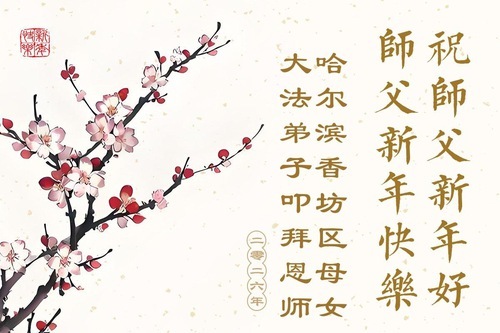 祝師父新年好
師父新年快樂
哈尔滨香坊区母女
大法弟子叩拜恩师
二零二六年
新年快樂